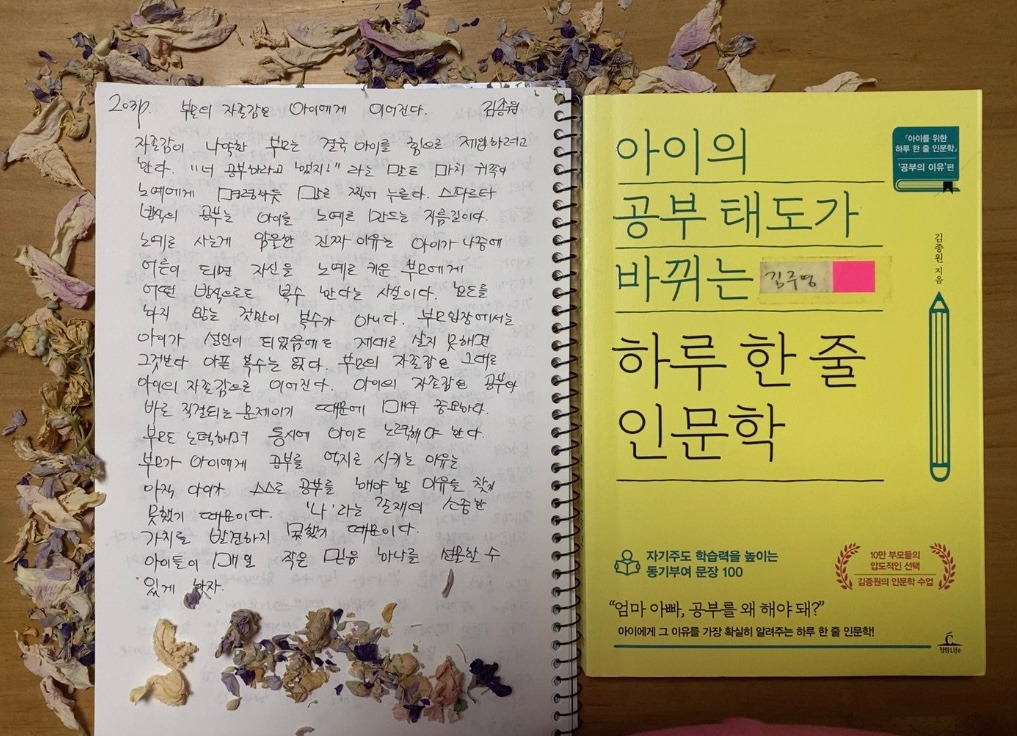 203p. 부모의 자존감은 아이에게 이어진다. 김종원
자존감이 나약한 부모는 결국 아이를 힘으로 제압하려고
한다. "너 공부하라고 했지!" 라는 말로 마치 귀족이
노예에게 명령하듯 말로 찍어 누른다. 스파르타
방식의 공부는 아이를 노예로 만드는 지름길이다.
노예로 사는게 암울한 진짜 이유는 아이가 나중에
어른이 되면 자신을 노예로 키운 부모에게
어떤 방식으로든 복수 한다는 사실이다. 부모를
보지 않는 것만이 복수가 아니다. 부모입장에서는
아이가 성인이 되었음에도 제대로 살지 못하면
그것보다 아픈 복수는 없다. 부모의 자존감은 그대로
아이의 자존감으로 이어진다. 아이의 자존감은 공부와
바로 직결되는 문제이기 때문에 매우 중요하다.
부모도 노력하며 동시에 아이도 노력해야 한다.
부모가 아이에게 공부를 억지로 시키는 이유는
아직 아이가 스스로 공부를 해야 할 이유를 찾지
못했기 때문이다. '나'라는 존재의 소중한
가치를 발견하지 못했기 때문이다.
아이들이 매일 작은 믿음 하나를 선물할 수
있게 하자.
아이의
공부 태도가
바뀌는
김주영
하루 한 줄
인문학
『아이를 위한
하루 한 줄 인문학』
'공부의 이유'편
김종원 지음
자기주도 학습력을 높이는
동기부여 문장 100
10만 부모들의
압도적인 선택
김종원의 인문학 수업
"엄마 아빠, 공부를 왜 해야 돼?"
아이에게 그 이유를 가장 확실히 알려주는 하루 한 줄 인문학!
청림Life